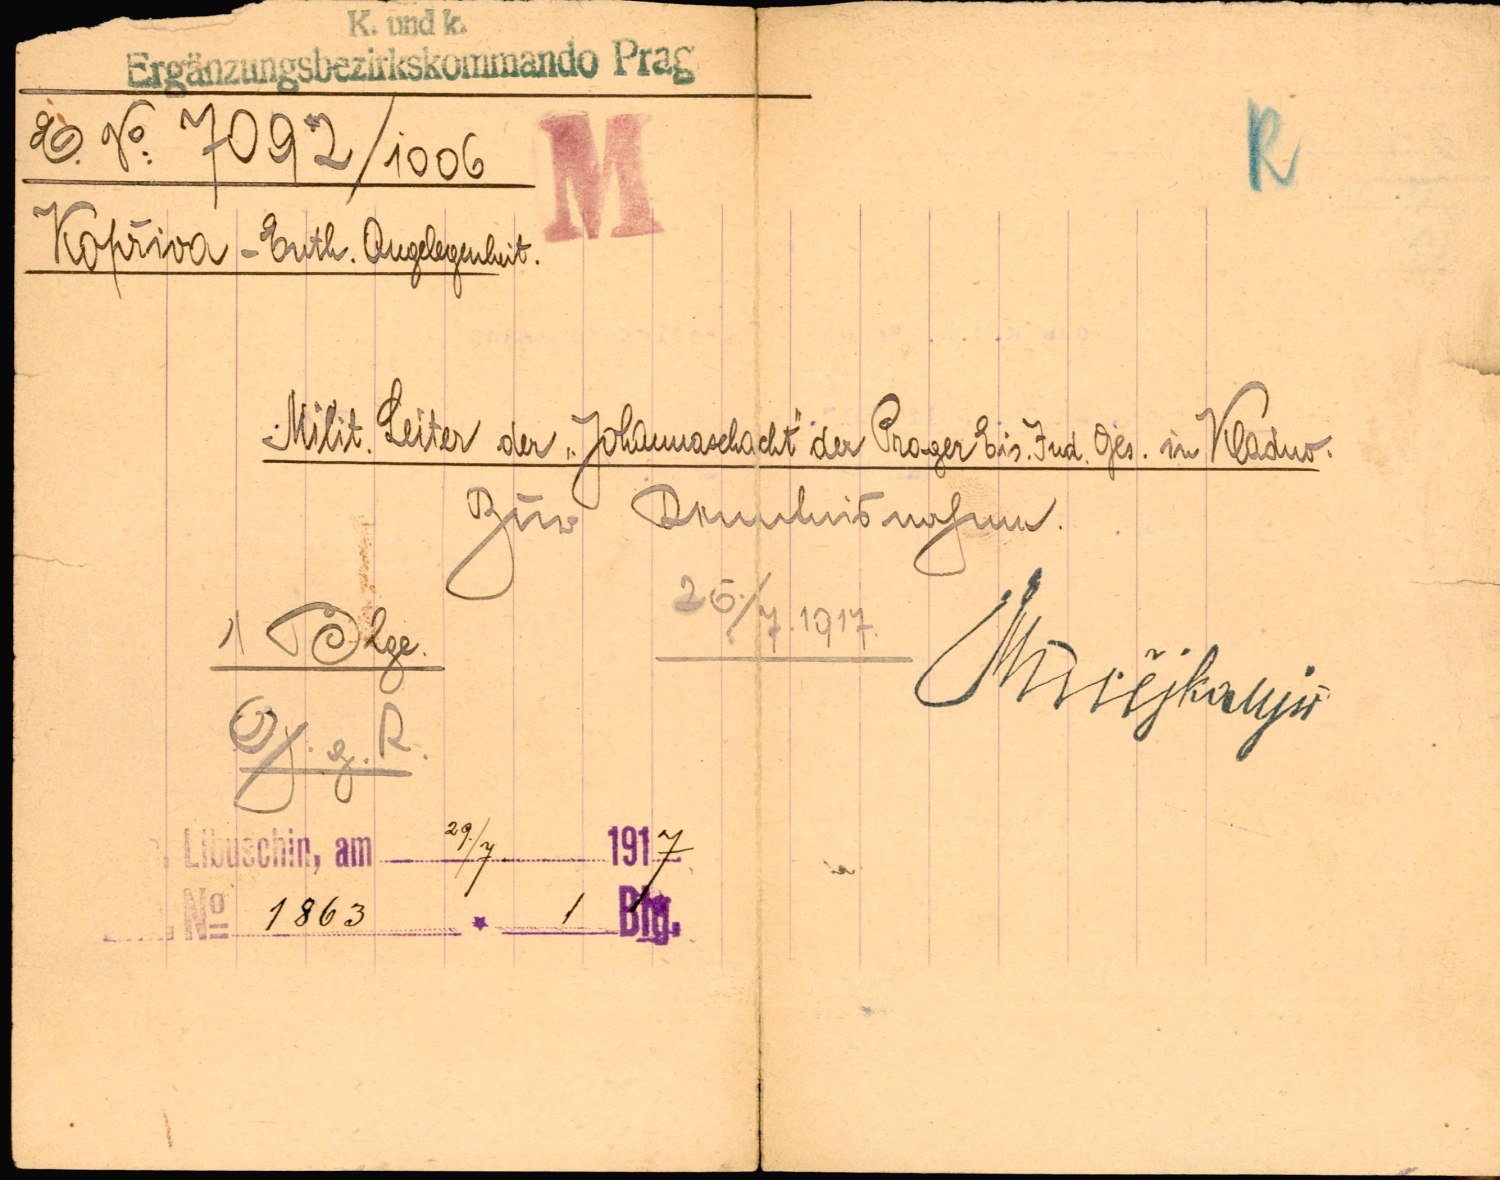 K. und k.
Ergänzungsbezirkskommando Prag
E. No: 7092/1006
M
R
Kopřiva - Enth. Angelegenheit.
Milit. Leiter der „Johannaschacht" der Prager Eis. Ind. Ges. in Kladno.
Zur Kenntnisnahme.
25/7. 1917.
1 Blge.
g. R.
Libuschin, am 29./7. 1917
No 1863 * 1 Blg.